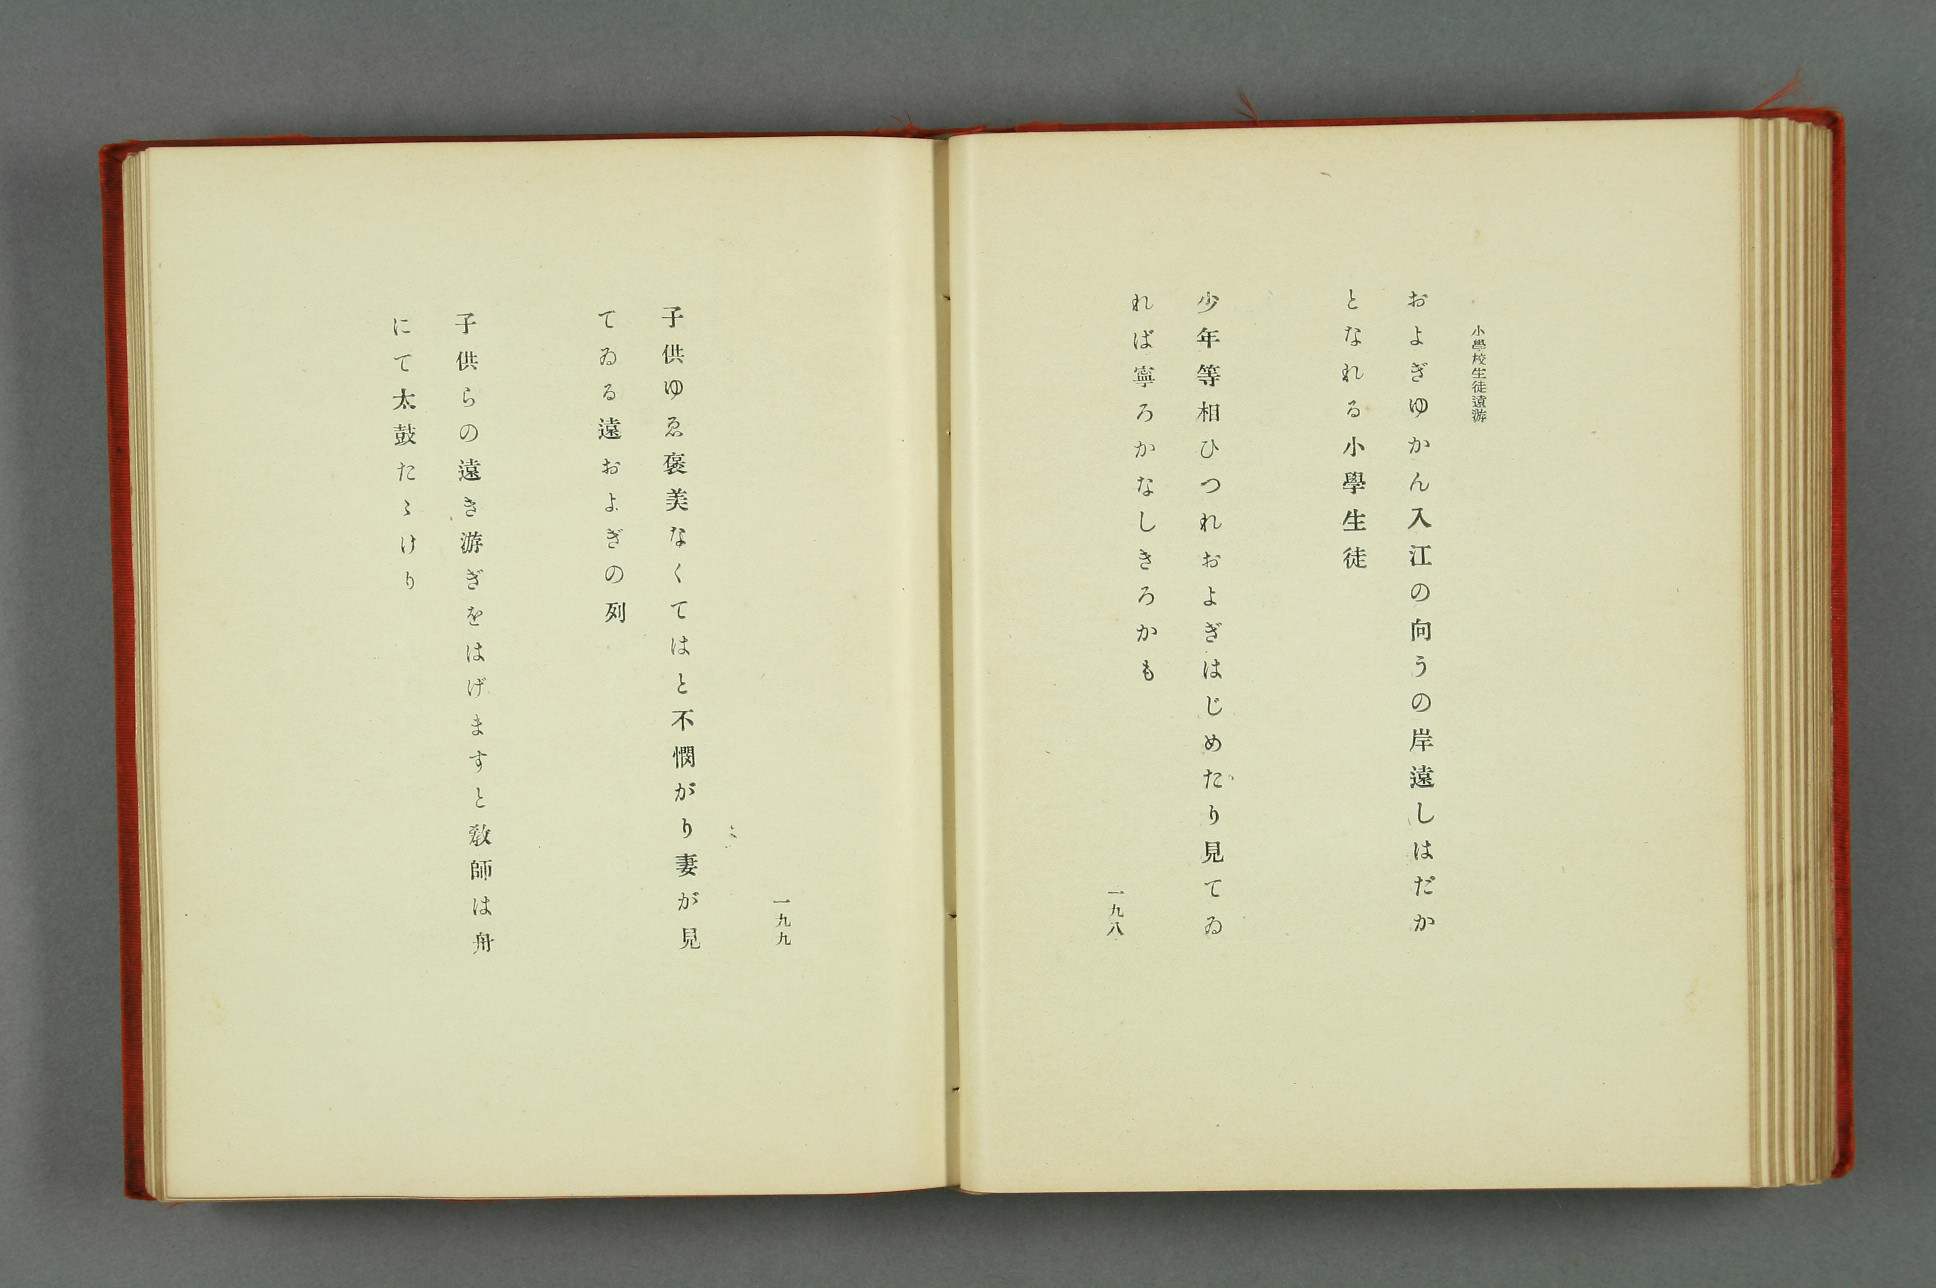 小學校生徒遠游
およぎゆかん入江の向うの岸遠しはだか
となれる小學生徒
少年等相ひつれおよぎはじめたり見てゐ
れば寧ろかなしきろかも
一九八
一九九
子供ゆゑ褒美なくてはと不憫がり妻が見
てゐる遠およぎの列
子供らの遠き游ぎをはげますと敎師は舟
にて太鼓たゝけり